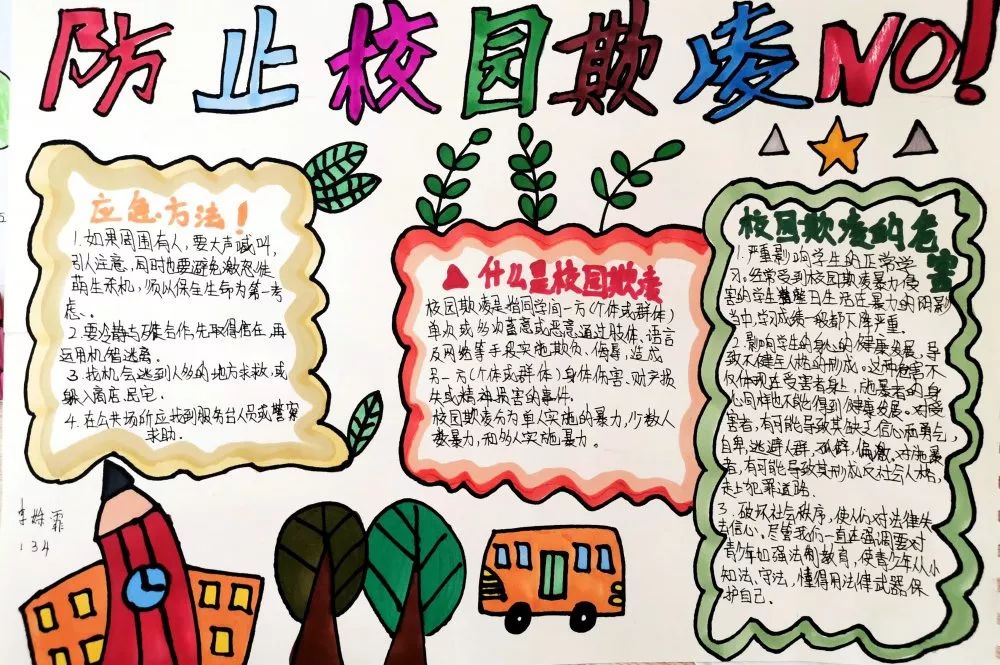 防止校园欺凌NO!
应急方法!
1.如果周围有人,要大声喊叫,
引人注意,同时也要避免激怒使
萌生杀机,须以保全生命为第一考
虑。
2.要冷静与佯合作,先取得信任,再
运用机智逃离。
3.找机会逃到人多的地方求救,或
躲入商店、民宅。
4.在公共场所应找到服务台人员或警察
求助.
什么是校园欺凌
校园欺凌是指同学间一方(个体或群体)
单次或多次蓄意或恶意通过肢体、语言
及网络等手段实施欺负、侮辱,造成
另一方(个体或群体)身体伤害、财产损
失或精神损害的事件.
校园欺凌分为单人实施的暴力,少数人
暴力,和多人实施暴力。
校园欺凌的危
害
1.严重影响学生的正常学
习。经常受到校园欺凌暴力侵
害的学生整日生活在暴力的阴影
当中,学习成绩一般都下降严重.
2.影响学生的身心的健康发展,导
致不健全人格的形成。这种危害不
仅体现在受害者身上,施暴者的身
心同样也不能得到健康发展。对受
害者,有可能导致其缺乏信心和勇气,
自卑,逃避人群,孤僻,偏激.对施暴
者,有可能导致其形成反社会人格,
走上犯罪道路.
3.破坏社会秩序,使人们对法律失
去信心。尽管我们一直在强调要对
青少年加强法制教育,使青少年从小
知法、守法,懂得用法律武器保
护自己.
李 霏
134